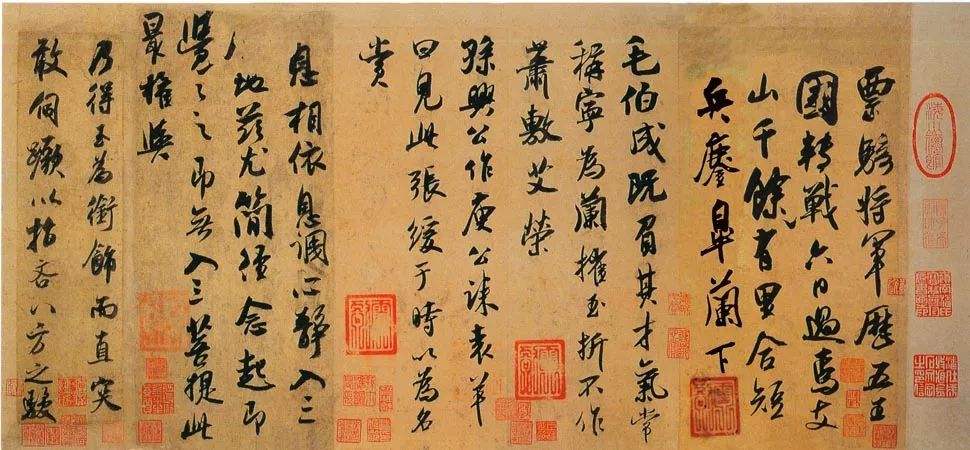 票騎将軍歷五王
國轉戰六日過焉支
山千餘有里合短
兵鏖皐蘭下
毛伯成既負其才氣常
稱寧為蘭摧玉折不作
蕭敷艾榮
孫興公作庾公誄袁羊
曰見此張緩于時以為名
賞
息相依息調心靜入三
地茲尤簡徑念起即
覺〻之即無入三菩提此
最權輿
乃得玉為銜飾而直突
敢伺蹶以指吝八方之駿